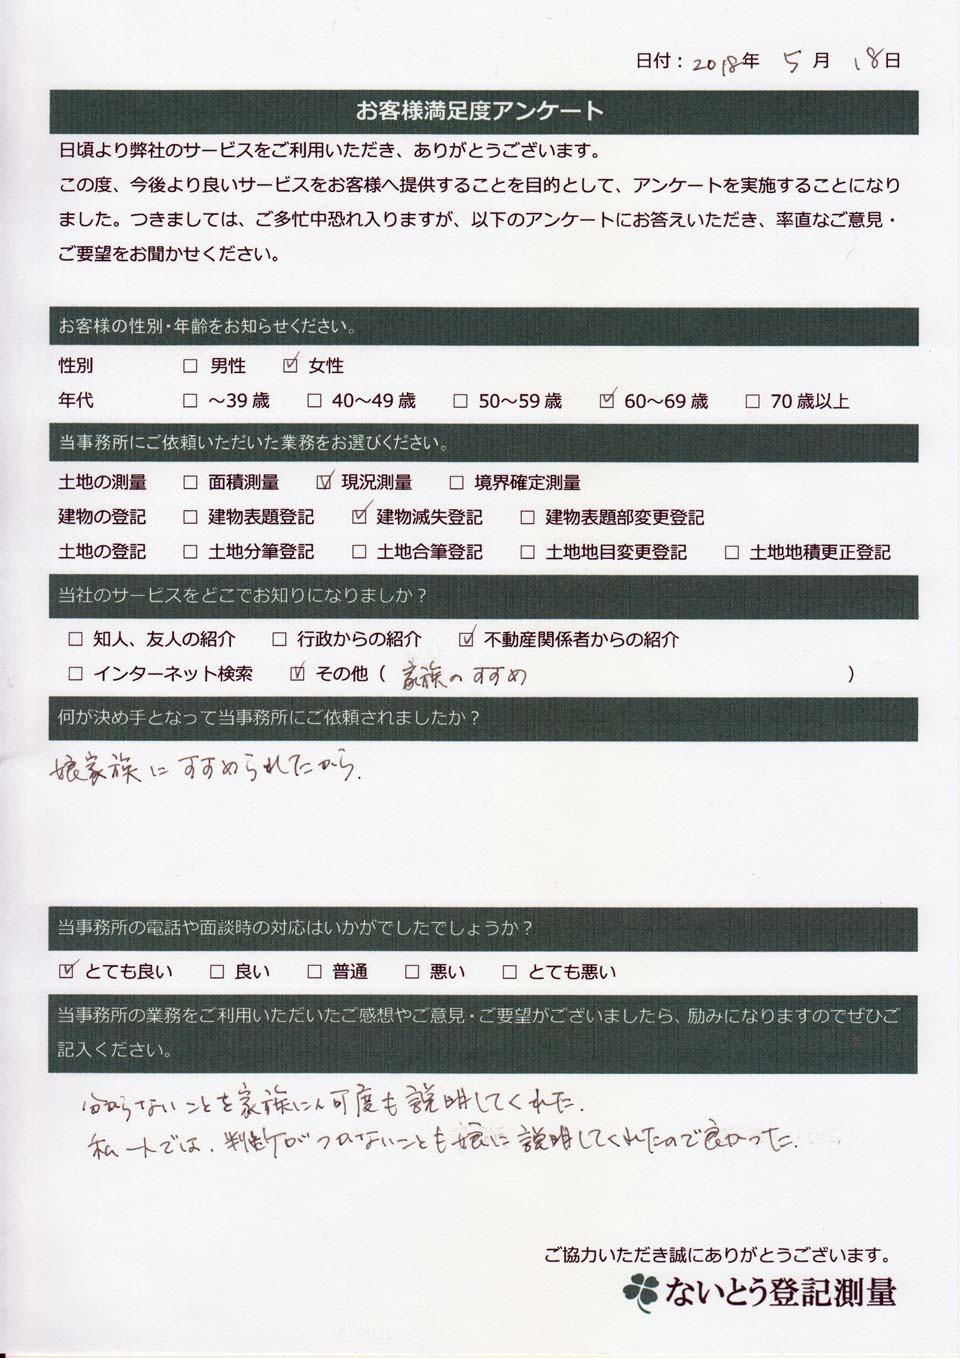 日付：2018年 5月 18日
お客様満足度アンケート
日頃より弊社のサービスをご利用いただき、ありがとうございます。
この度、今後より良いサービスをお客様へ提供することを目的として、アンケートを実施することになり
ました。つきましては、ご多忙中恐れ入りますが、以下のアンケートにお答えいただき、率直なご意見・
ご要望をお聞かせください。
お客様の性別・年齢をお知らせください。
性別 □ 男性 ☑ 女性
年代 □ ～39歳 □ 40～49歳 □ 50～59歳 ☑ 60～69歳 □ 70歳以上
当事務所にご依頼いただいた業務をお選びください。
土地の測量 □ 面積測量 ☑ 現況測量 □ 境界確定測量
建物の登記 □ 建物表題登記 ☑ 建物滅失登記 □ 建物表題部変更登記
土地の登記 □ 土地分筆登記 □ 土地合筆登記 □ 土地地目変更登記 □ 土地地積更正登記
当社のサービスをどこでお知りになりましか？
□ 知人、友人の紹介 □ 行政からの紹介 ☑ 不動産関係者からの紹介
□ インターネット検索 ☑ その他（ 家族のすすめ ）
何が決め手となって当事務所にご依頼されましたか？
娘家族にすすめられたから.
当事務所の電話や面談時の対応はいかがでしたでしょうか？
☑ とても良い □ 良い □ 普通 □ 悪い □ とても悪い
当事務所の業務をご利用いただいたご感想やご意見・ご要望がございましたら、励みになりますのでぜひご
記入ください。
分からないことを家族に何度も説明してくれた.
私一人では、判断がつかないことも娘に説明してくれたので良かった.
ご協力いただき誠にありがとうございます。
ないとう登記測量